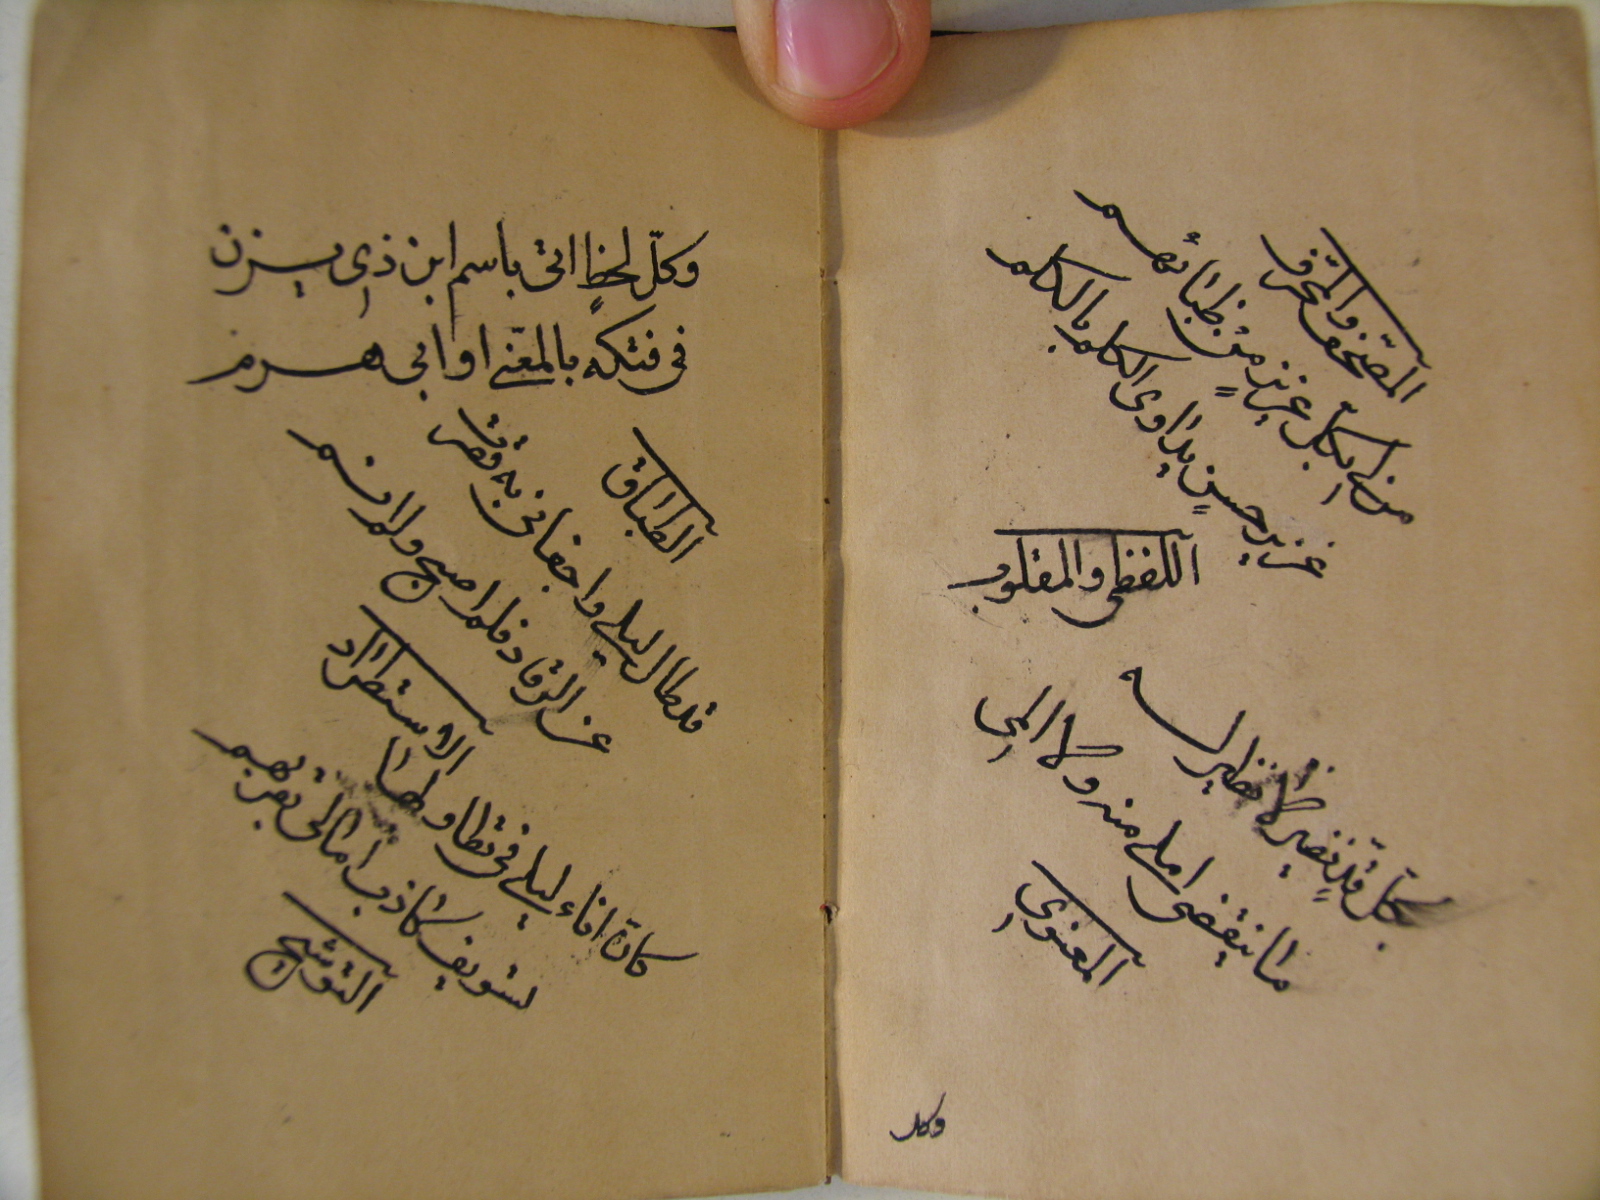 المصحّف والمحرّف
من لي بكلّ غرير منْ ظبائهم
عزيز حسنٍ يداوى الكلم بالكلم
اللفظى والمقلوب
بكلّ قدّ نضير لا نظير له
ما ينقضى املى منه ولا المى
المعنوى
وكل
وكلّ لحظٍ اتى باسم ابن ذى يزن
فى فتكه بالمعنّى او ابى هرم
الطباق
قد طال ليلى واجفانى به قصرت
عن الرقاد فلم اصبح ولم انم
الاستطراد
كانّ اناء ليلى فى تطاولها
تسويف كاذب امالى بقربهم
التوشيح